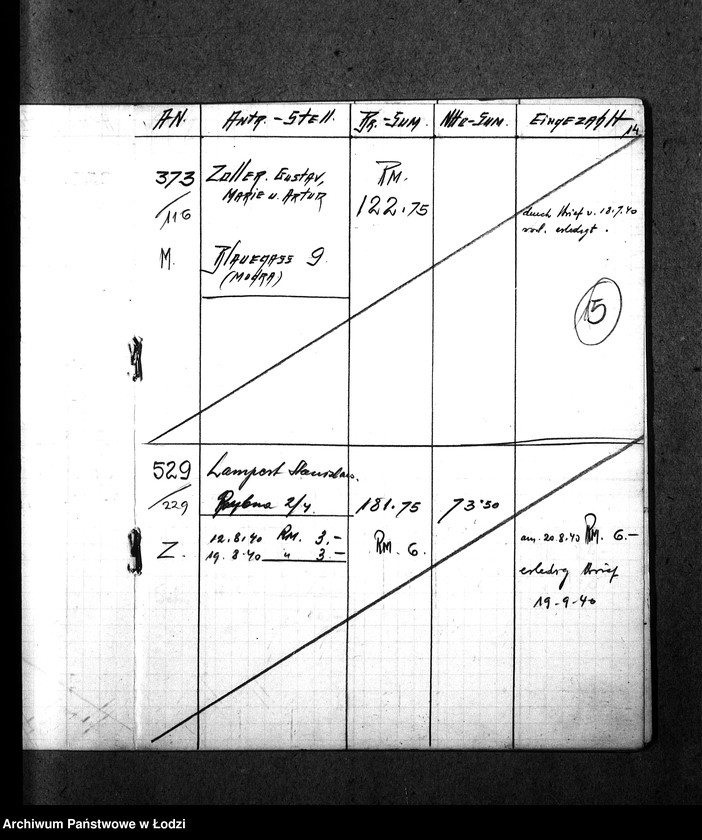 AN. Antr.-Stell. Rr.-Sum. Nhr-Sum. Eingezahlt
14.
373 Zoller. Gustav, RM.
/116 Marie u. Artur 122.75 durch Brief v. 18.7.40
vorl. erledigt.
M. Blauegass 9
(Mohra)
15
529 Lamport Stanislaw.
/229 2/4. 181.75 73.50
Z. 12.8.40 RM. 3.- RM. 6. am. 20.8.40 RM. 6.-
19.8.40 " 3.-
erledig Brief
19-9-40
Archiwum Państwowe w Łodzi